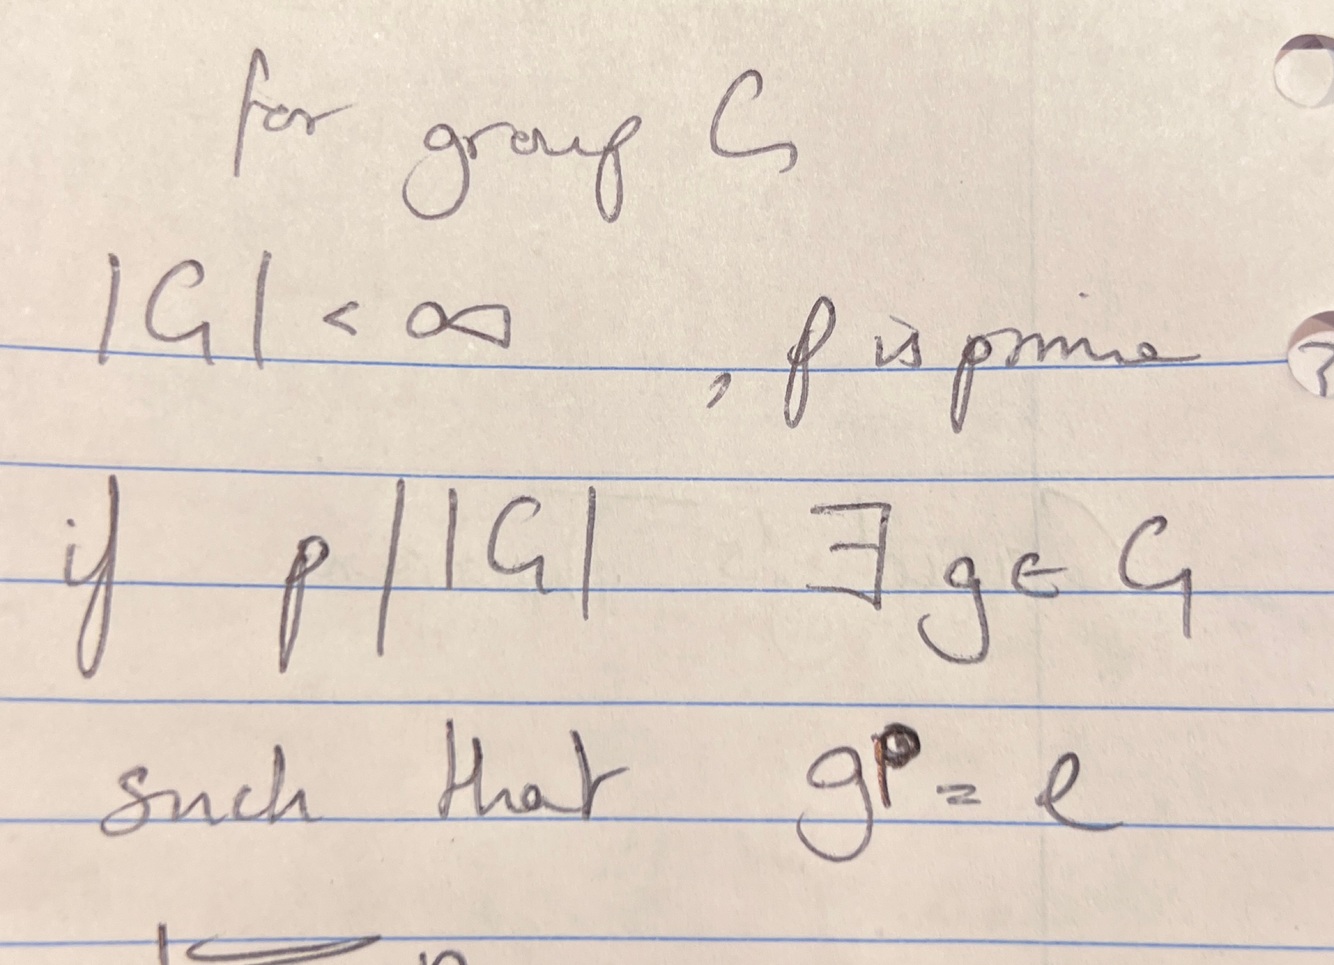 for group G
|G| < ∞ , p is prime
if p | |G| ∃ g ∈ G
such that gᵖ = e